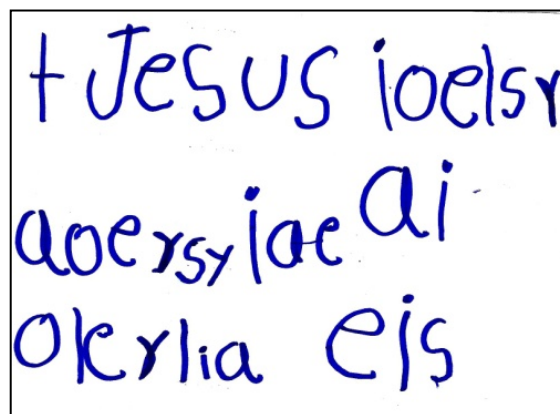 + Jesus ioelsr
aoersyiae ai
okrlia eis